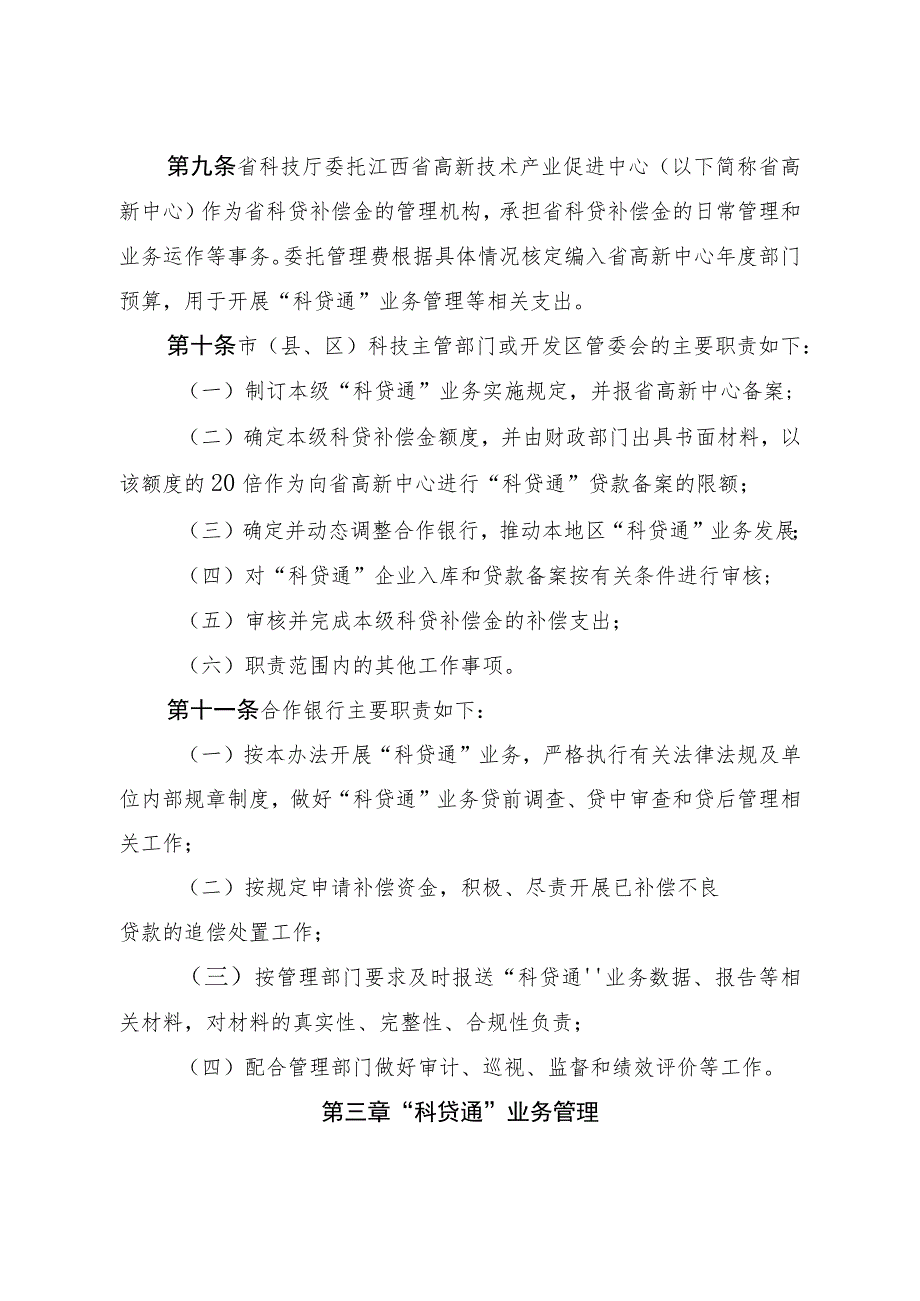 第九条省科技厅委托江西省高新技术产业促进中心（以下简称省高
新中心）作为省科贷补偿金的管理机构，承担省科贷补偿金的日常管理和
业务运作等事务。委托管理费根据具体情况核定编入省高新中心年度部门
预算，用于开展“科贷通”业务管理等相关支出。
第十条市（县、区）科技主管部门或开发区管委会的主要职责如下：
（一）制订本级“科贷通”业务实施规定，并报省高新中心备案；
（二）确定本级科贷补偿金额度，并由财政部门出具书面材料，以
该额度的20倍作为向省高新中心进行“科贷通”贷款备案的限额；
（三）确定并动态调整合作银行，推动本地区“科贷通”业务发展；
（四）对“科贷通”企业入库和贷款备案按有关条件进行审核；
（五）审核并完成本级科贷补偿金的补偿支出；
（六）职责范围内的其他工作事项。
第十一条合作银行主要职责如下：
（一）按本办法开展“科贷通”业务，严格执行有关法律法规及单
位内部规章制度，做好“科贷通”业务贷前调查、贷中审查和贷后管理相
关工作；
（二）按规定申请补偿资金，积极、尽责开展已补偿不良
贷款的追偿处置工作；
（三）按管理部门要求及时报送“科贷通''业务数据、报告等相
关材料，对材料的真实性、完整性、合规性负责；
（四）配合管理部门做好审计、巡视、监督和绩效评价等工作。
第三章“科贷通”业务管理